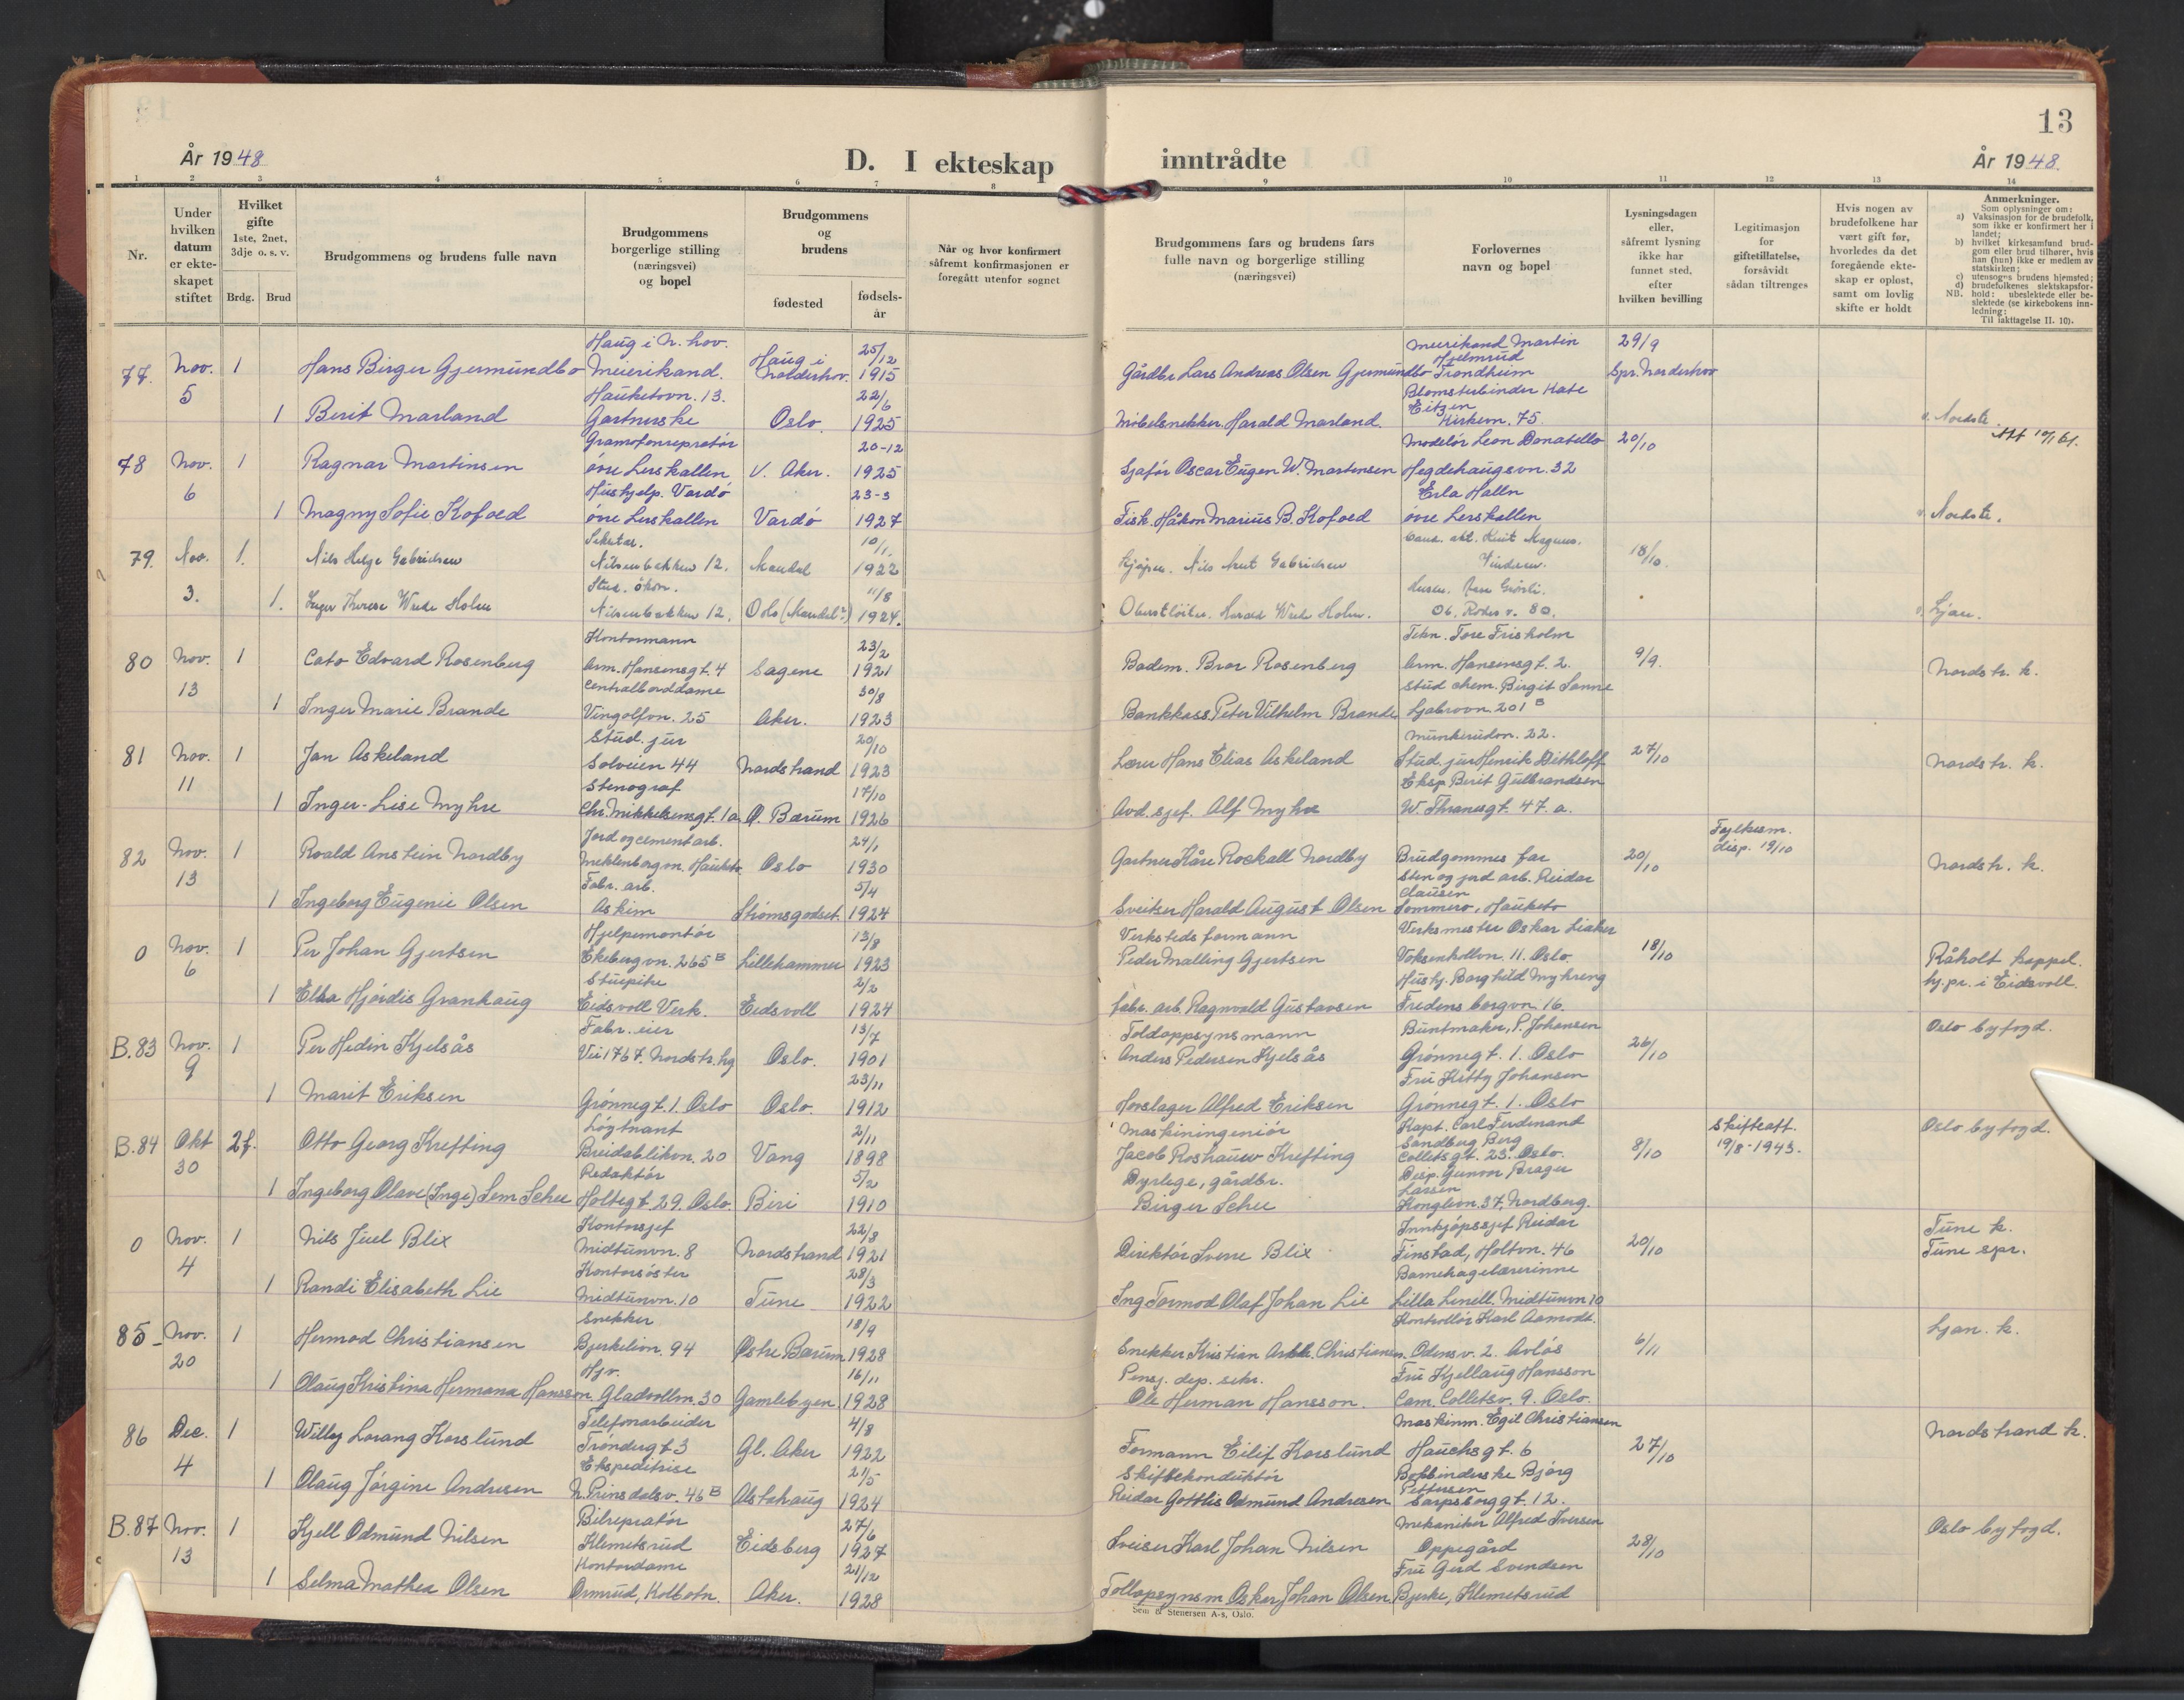 13
År 1948
D. I ekteskap inntrådte
År 1948.
1 2 3 4 5 6 7 8 9 10 11 12 13 14
Nr.
Under hvilken datum er ekteskapet stiftet
Hvilket gifte 1ste, 2net, 3dje o. s. v.
Brdg. Brud
Brudgommens og brudens fulle navn
Brudgommens borgerlige stilling (næringsvei) og bopel
Brudgommens og brudens
fødested
fødsels-år
Når og hvor konfirmert såfremt konfirmasjonen er foregått utenfor sognet
Brudgommens fars og brudens fars fulle navn og borgerlige stilling (næringsvei)
Forlovernes navn og bopel
Lysningsdagen eller, såfremt lysning ikke har funnet sted, efter hvilken bevilling
Legitimasjon for giftetillatelse, forsåvidt sådan tiltrenges
Hvis nogen av brudefolkene har vært gift før, hvorledes da det foregående ekteskap er opløst, samt om lovlig skifte er holdt
Anmerkninger.
Som oplysninger om:
a) Vaksinasjon for de brudefolk, som ikke er konfirmert her i landet;
b) hvilket kirkesamfund brudgom eller brud tilhører, hvis han (hun) ikke er medlem av statskirken;
c) utensogns brudens hjemsted;
d) brudefolkenes slektskapsforhold: ubeslektede eller beslektede (se kirkebokens innledning:
NB.
Til iakttagelse II. 10).
77. Nov. 5 1 Hans Birger Gjermundbo
Haug i N. hov. Meierikand.
Haug i Norderhov. 25/12 1915
Gårdbr Lars Andreas Olsen Gjermundbo
Meierikand Martin Hjelmrud Trondheim
29/9 Spr. Norderhov
1 Berit Marland
Hauketovn. 13. Gartnerske
Oslo. 22/6 1925
Møbelsnekker Harald Marland.
Blomsterbinder Kate Eitzen Kirkevn. 75.
78 Nov. 6 1 Ragnar Martinsen
Gramofonrepratør øvre Lerskallen
V. Aker. 20-12 1925
Sjafør Oscar Eugen W. Martensen
Modelør Leon Donatello Hegdehaugsvn. 32
20/10
1 Magny Sofie Kofoed
Hushjelp. Vardø øvre Lerskallen
Vardø 23-3 1927
Fisk. Håkon Marius B. Kofoed
Erla Halln øvre Lerskallen
79. Nov. 3. 1. Nils Helge Gabrielsen
Sekretær. Nilsenbakken 12.
Mandal 10/1 1922
Nils Aut Gabrielsen
18/10.
1. Inger Therese Wrede Holm
Stud. økon. Nilsenbakken 12.
Oslo (Mandal?) 11/8 1924.
Oberstløitn. Harald Wrede Holm.
Ob. Rodes v. 80.
Ljan.
80 Nov. 13 1 Cato Edvard Rosenberg
Kontormann Arm. Hansensgt. 4
Sagene 23/2 1921
Badem. Bror Rosenberg
Tekn. Tore Frisholm Arm. Hansensgt. 2.
9/9.
Nordstr. k.
1 Inger Marie Brande
Centralborddame Vingolfvn. 25
Aker. 30/8 1923
Bankkass. Peter Vilhelm Brande
Stud chem. Birgit Sanne Ljabrovn. 201 B
81 Nov. 11 1 Jan Askeland
Stud. jur Solveien 44
Nordstrand 20/10 1923
Lærer Hans Elias Askeland
Munkerudvn. 22. Stud. jur Henrik Dithleff
27/10
Nordstr. k.
1 Inger-Lise Myhre
Stenograf Chr. Mikkelsensgt. 1a
Ø. Bærum 17/10 1926
Avd. sjef. Alf Myhre
Eksp. Berit Gulbrandsen W. Thranesgt. 47. a.
82 Nov. 13 1 Roald Anstein Nordby
Jord og cementarb. Meklenborgvn. Hauketo.
Oslo 24/1 1930
Gartner Kåre Rockall Nordby
Brudgommes far
20/10
Fylkesm. disp. 19/10
Nordstr. k.
1 Ingeborg Eugenie Olsen
Fabr. arb. Askim
Strømsgodset 5/4 1924
Sveitser Harald August Olsen
Sten og jord arb. Reidar Clausen Sommero, Hauketo
0 Nov. 6 1 Per Johan Gjertsen
Hjelpemontør Ekebergvn. 265 B
Lillehammer 13/8 1923
Verksteds formann Peder Malling Gjertsen
Verksmester Oskar Liaker Voksenkollvn. 11. Oslo
18/10
Råholt kappel. sg. pr. i Eidsvoll.
1 Elsa Hjørdis Grankaug
Stuepike Eidsvoll Verk.
Eidsvoll 2/2 1924
Fabr. arb. Ragnvald Gustavsen
Hushj. Borghild Myhreng Fredensborgvn. 16.
B.83 Nov. 9 1 Per Hedin Kjelsås
Fabr. eier Vei 1767. Nordstr. hg
Oslo. 13/7 1901
Toldoppsynsmann Anders Pedersen Kjelsås
Buntmaker, P. Johansen Grønnegt. 1. Oslo
26/10
Oslo byfogd.
1 Marit Eriksen
Grønnegt. 1. Oslo
Oslo. 23/11 1912
Horslager Alfred Eriksen
Fru Kitty Johansen Grønnegt. 1. Oslo
B.84 Okt 30 2f. Otto Georg Krefting
Løytnant Breidablikvn. 20
Vang 2/11 1898
Maskiningeniør Jacob Roshauw Krefting
Kapt. Carl Ferdinand Sandberg Berg Colletsgt. 23. Oslo.
8/10
Skifteatt. 19/8-1943.
Oslo byfogd.
1 Ingeborg Olave (Inge) Sem Schee
Redaktør Holtegt. 29. Oslo.
Biri 5/2 1910
Dyrlege, gårdbr. Birger Schee
Disp. Gunvor Brager Larsen Konglevn. 37, Nordberg.
0 Nov. 4 1 Nils Juel Blix
Kontorsjef Midtunvn. 8
Nordstrand 22/8 1921
Direktør Sverre Blix
Innkjøpssjef Reidar Finstad, Holtvn. 46
20/10
Tune k. Tune spr.
1 Randi Elisabeth Lie
Kontorsøster Midtunvn. 10
Tune 28/3 1922
Ing Tormod Olaf Johan Lie
Barnehagelærerinne Lilla Linell. Midtunvn 10
85- Nov. 20 1 Hermod Christiansen
Snekker Bjerkelivn. 94
Østre Bærum 18/9 1928
Snekker Kristian Christiansen.
Kontrollør Karl Aamodt. Odensv. 2. Avløs
6/11
Ljan. k.
1 Olaug Kristina Hermana Hansson
Hjv. Gladvollvn. 30
Gamlebyen 16/11 1928
Pensj. dep. sekr. Ole Herman Hansson.
Fru Kjellaug Hansson Cam. Colletsv. 9. Oslo.
86 Dec. 4 1 Willy Lorang Korslund
Telefonarbeider Trøndergt 3
Gl. Aker 4/8 1922
Formann Eilif Korslund
Maskinm. Egil Christiansen Hauchsgt. 6
27/10
Nordstrand k.
1 Olaug Jørgine Andresen
Ekspeditrise N. Prinsdalsv. 46 B
Alstahaug 21/5 1924
Skiftekonduktør Reidar Gottlis Odmund Andresen
Bokbinderske Bjørg Pettersen Sarpsborggt. 12.
B.87 Nov. 13 1 Kjell Odmund Nilsen
Bilrepratør Klemetsrud
Eidsberg 27/6 1927
Sveiser Karl Johan Nilsen
Mekaniker Alfred Iversen Oppegård
28/10
Oslo byfogd.
1 Selma Mathea Olsen
Kontordame Ormrud, Kolbotn.
Aker. 21/12 1928
Tollopsynsm Oskar Johan Olsen
Fru Gerd Svendsen Bjerke, Klemetsrud
Sem & Stenersen A-s, Oslo.